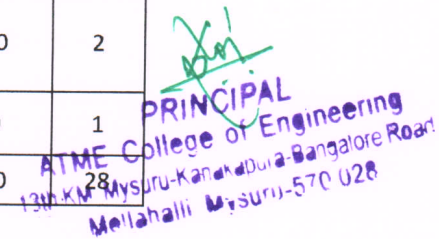 0 2
PRINCIPAL
1
ATME College of Engineering
0 28
13th KM Mysuru-Kanakapura-Bangalore Road
Mellahalli Mysuru-570 028